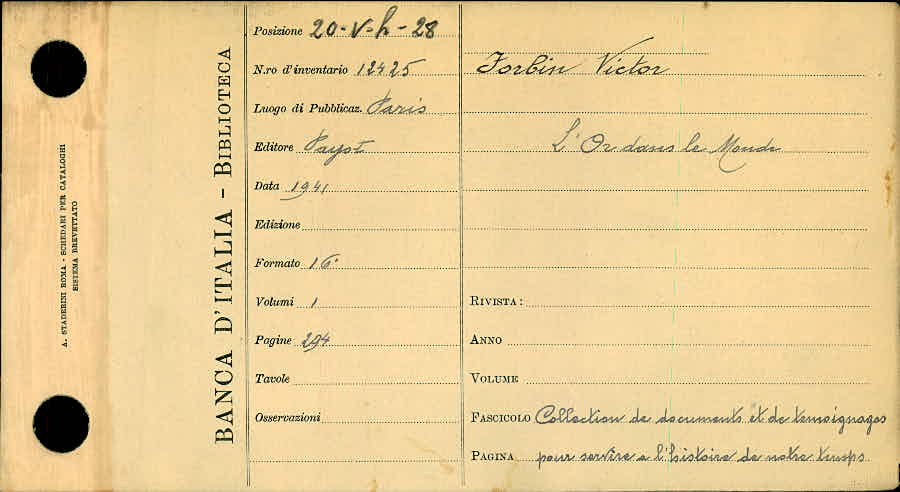 A. STADERINI ROMA - SCHEDARI PER CATALOGHI
SISTEMA BREVETTATO
BANCA D'ITALIA - BIBLIOTECA
Posizione 20-V-h-28
N.ro d'inventario 12425
Luogo di Pubblicaz. Paris
Editore Payot
Data 1941
Edizione
Formato 16°
Volumi 1
Pagine 294
Tavole
Osservazioni
Forbin Victor
L'Or dans le Monde
RIVISTA:
ANNO
VOLUME
FASCICOLO Collection de documents et de temoignages
PAGINA pour servire a l'histoire de notre temps